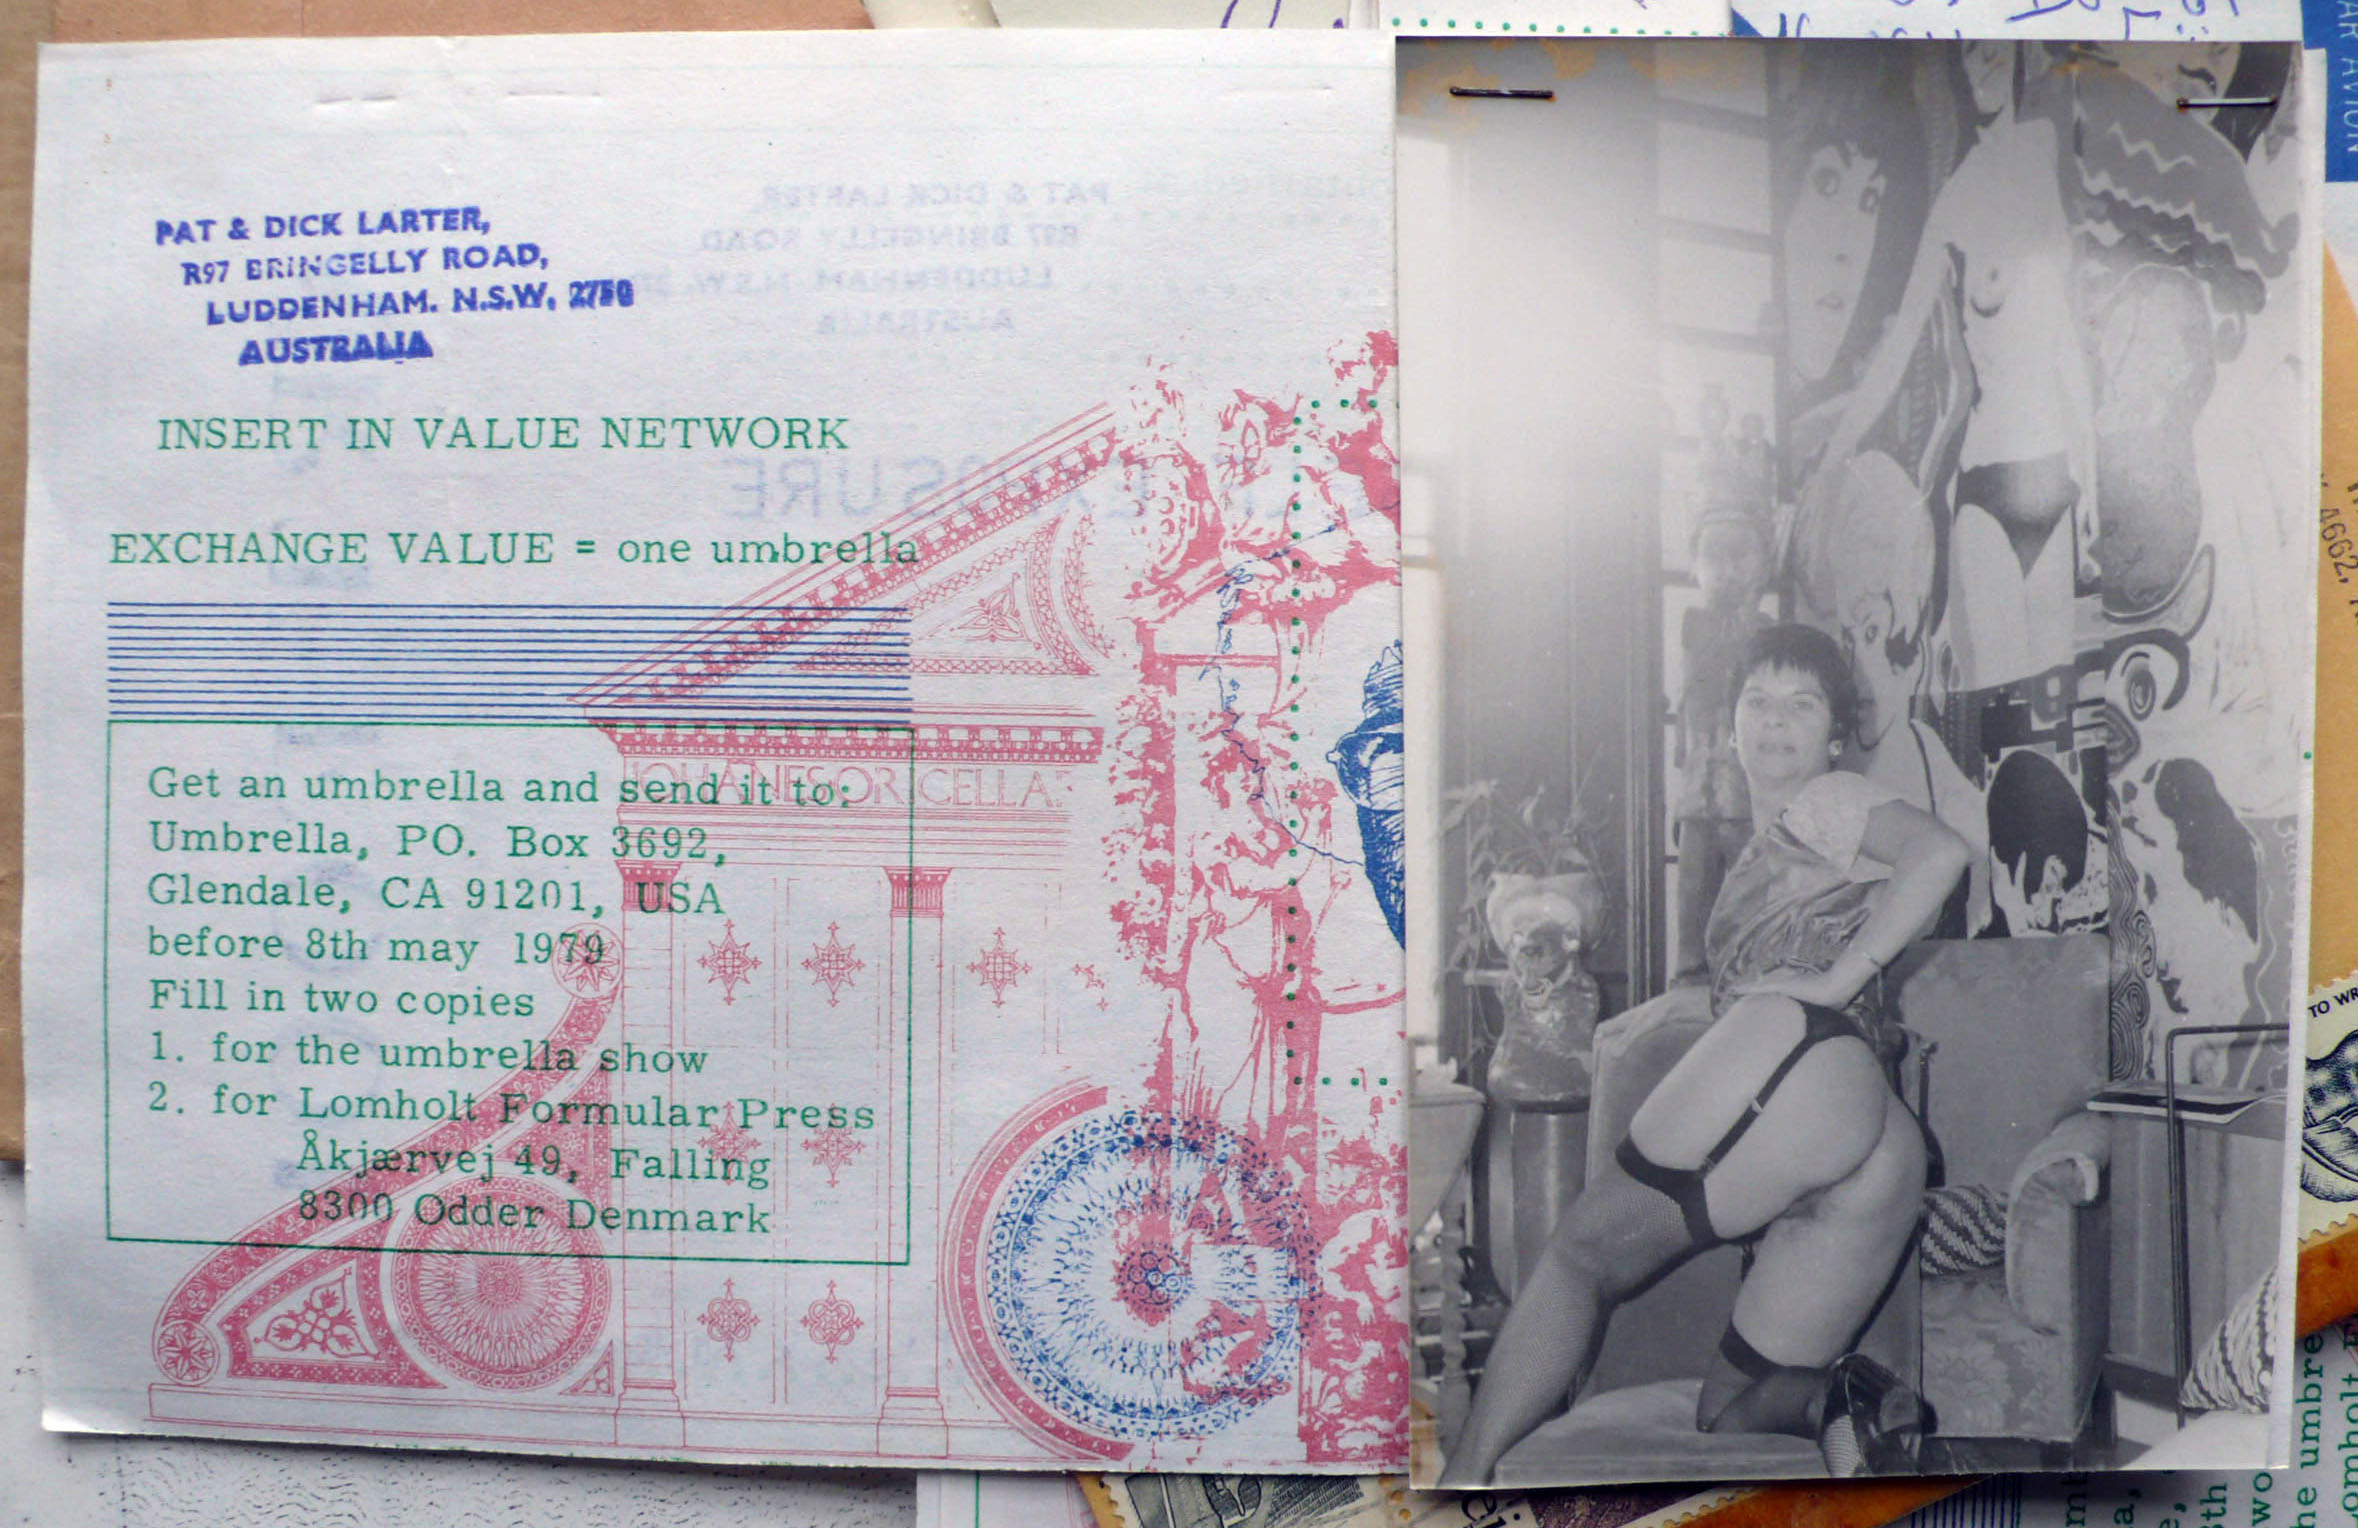 PAT & DICK LARTER,
R97 BRINGELLY ROAD,
LUDDENHAM. N.S.W. 2750
AUSTRALIA
INSERT IN VALUE NETWORK
EXCHANGE VALUE = one umbrella
Get an umbrella and send it to:
Umbrella, PO. Box 3692,
Glendale, CA 91201, USA
before 8th may 1979
Fill in two copies
1. for the umbrella show
2. for Lomholt Formular Press
Åkjærvej 49, Falling
8300 Odder Denmark
PAT & DICK LARTER,
R97 BRINGELLY ROAD,
LUDDENHAM. N.S.W.
AUSTRALIA
EXPOSURE
CELLA
AR AVION
4662,
TO WR
he umbre
omholt
8th